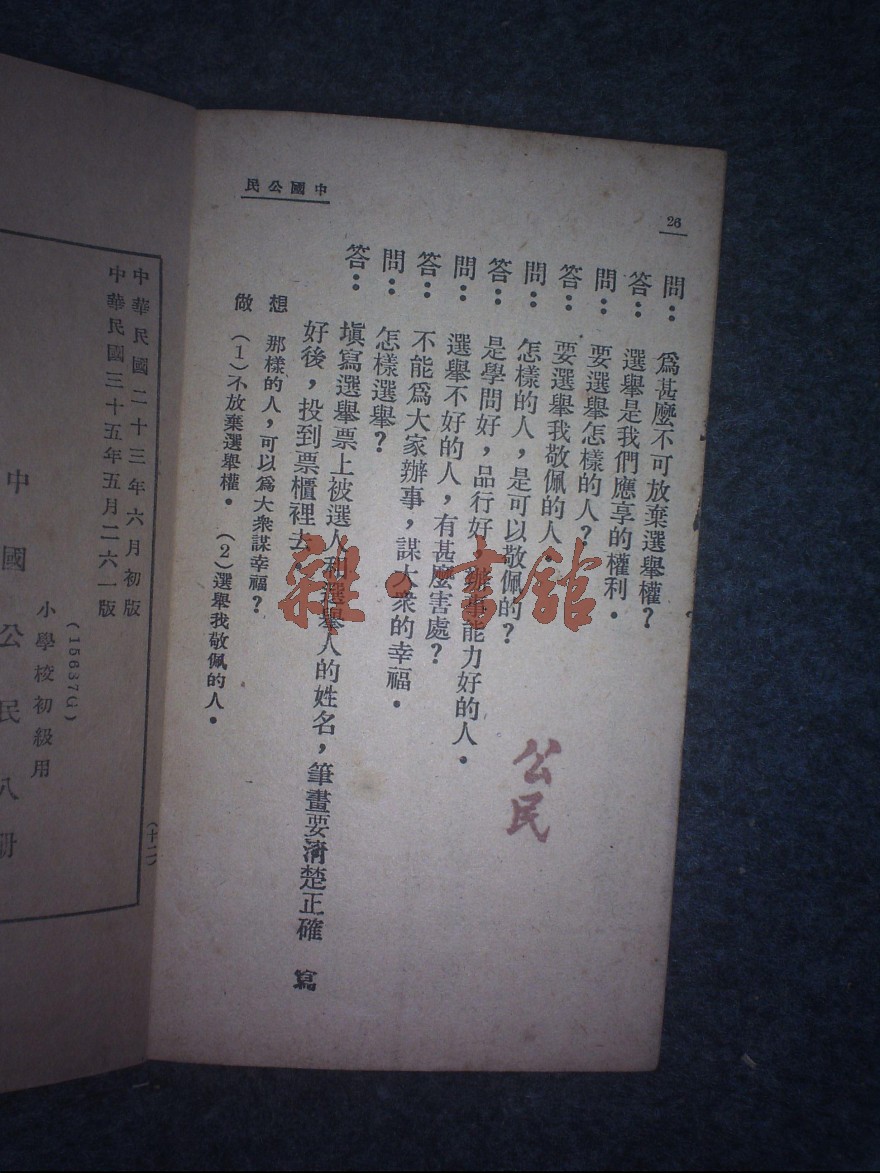 中國公民
26
問：爲甚麼不可放棄選舉權？
答：選舉是我們應享的權利．
問：要選舉怎樣的人？
答：要選舉我敬佩的人．
問：怎樣的人，是可以敬佩的？
答：是學問好，品行好，辦事能力好的人．
問：選舉不好的人，有甚麼害處？
答：不能爲大家辦事，謀大衆的幸福．
問：怎樣選舉？
答：塡寫選舉票上被選人和選舉人的姓名，筆畫要淸楚正確　寫
好後，投到票櫃裡去．
想　那樣的人，可以爲大衆謀幸福？
做　(1)不放棄選舉權．　(2)選舉我敬佩的人．
公民
雜·書館
中華民國二十三年六月初版
中華民國三十五年五月二六一版
(15637G)
小學校初級用
中國公民八册
(十二)